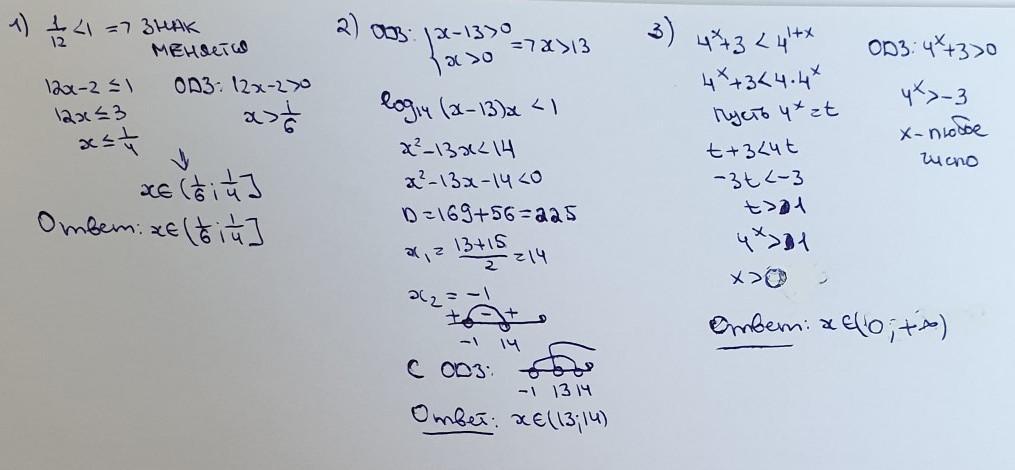 1) 1/12 < 1 => ЗНАК
МЕНЯЕТСЯ
12x-2 ≤ 1 ОДЗ: 12x-2>0
12x ≤ 3 x > 1/6
x ≤ 1/4
x∈(1/6; 1/4]
Ответ: x∈(1/6; 1/4]
2) ОДЗ: {x-13>0
{x>0 => x>13
log₁₄ (x-13)x < 1
x²-13x<14
x²-13x-14<0
D=169+56=225
x₁ = (13+15)/2 = 14
x₂ = -1
+ - +
-1 14
С ОДЗ:
-1 13 14
Ответ: x∈(13;14)
3) 4ˣ+3 < 4¹⁺ˣ ОДЗ: 4ˣ+3>0
4ˣ+3<4·4ˣ 4ˣ>-3
Пусть 4ˣ=t x-любое
число
t+3<4t
-3t<-3
t>1
4ˣ>1
x>0
Ответ: x∈(0;+∞)